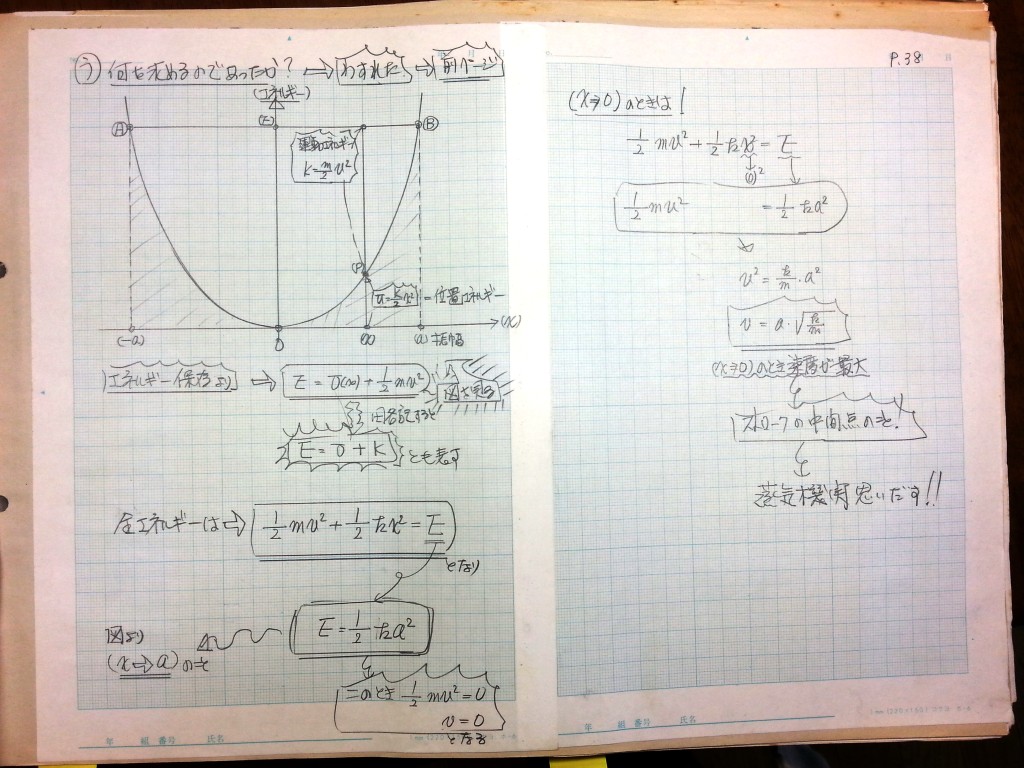 う) 何を求めるのであったか? ⇒ わすれた! ⇒ 前ページ
(エネルギー)
(E)
Ⓐ
Ⓑ
運動エネルギー
K=m/2 v²
(P)
U=k/2 x² = 位置エネルギー
(-a)
0
(x)
(a) 振幅
→(x)
エネルギー保存より ⇒ E = U(x) + 1/2 mv²
図を見る
E = U + K とも表す
全エネルギーは ⇒ 1/2 mv² + 1/2 kx² = E
となり
E = 1/2 ka²
図より
(x⇒a)のとき
このとき 1/2 mv² = 0
v = 0
となる
年 組 番号 氏名
P.38
(x⇒0)のときは
1/2 mv² + 1/2 kx² = E
(0)²
1/2 mv² = 1/2 ka²
v² = k/m · a²
v = a · √k/m
(x⇒0)のとき速度が最大
才0-7の中間点のとき!
蒸気機関思いだす!!
年 組 番号 氏名